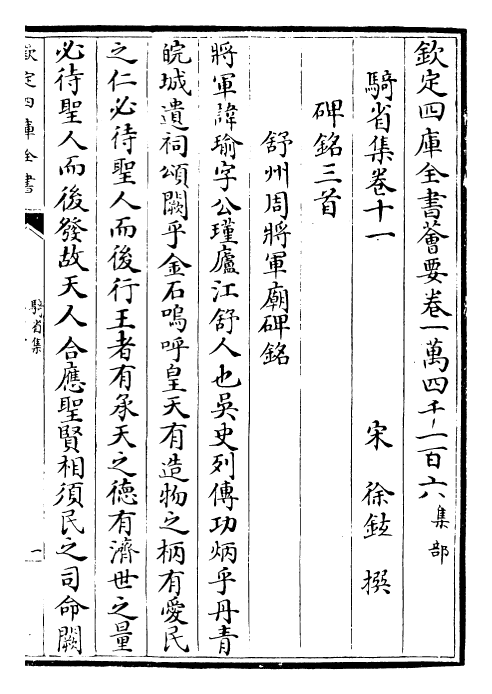 欽定四庫全書薈要卷一萬四千二百六 集部
騎省集卷十一
宋 徐鉉 撰
碑銘三首
舒州周將軍廟碑銘
將軍諱瑜字公瑾廬江舒人也吳史列傳功炳乎丹青
皖城遺祠頌闕乎金石嗚呼皇天有造物之柄有愛民
之仁必待聖人而後行王者有承天之德有濟世之量
必待聖人而後發故天人合應聖賢相須民之司命闕
欽定四庫全書
騎省集
一